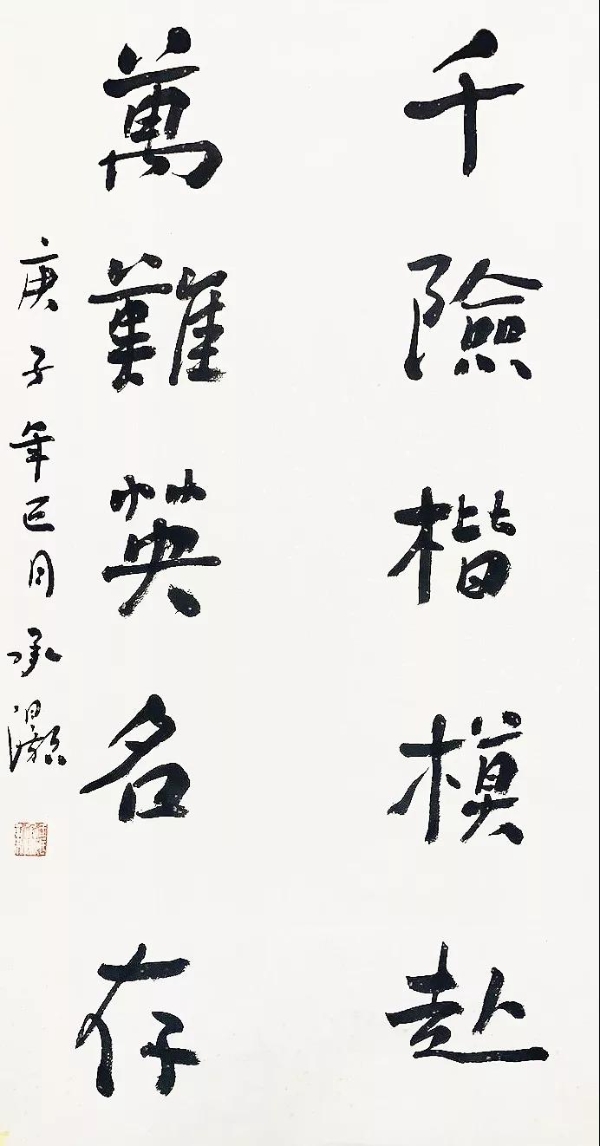 千險楷模赴
萬難英名存
庚子年巳月承灝